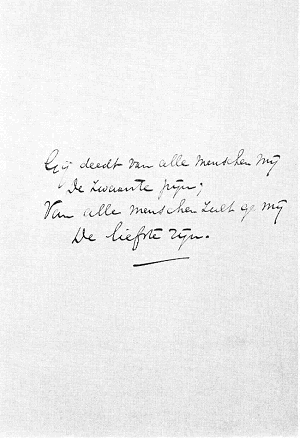 Gij deedt van alle menschen mij
De zwaarste pijn;
Van alle menschen zult gij mij
De liefste zijn.